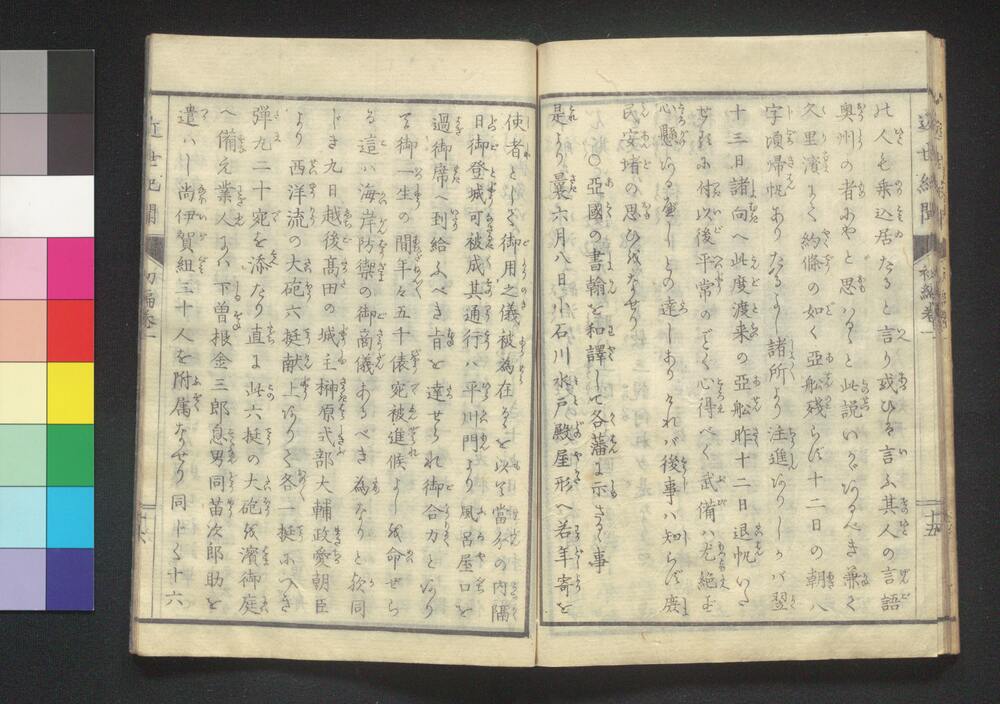 此人も乗込居たると言り或ひは言ふ其人の言語
奥州の者にやと思はると此説いかゞあるべき兼て
久里濱にて約條の如く亜舩残らず十二日の朝八
字頃帰帆ありたるよし諸所より注進ありしかバ翌
十三日諸向へ此度渡来の亜舩昨十二日退帆いた
せし付以後平常のごとく心得べく武備ハ尤絶ず
心懸あるべしとの達しありそれバ後事ハ知らず庶
民安堵の思ひをなせり
○亜國の書翰を和譯して各藩に示さるゝ事
是より曩六月八日小石川水戸殿屋形へ若年寄を
使者として御用之儀被為在るを以て當分の内隔
日御登城可被成其通行ハ平川門より風呂屋口を
過御席へ到給ふべき旨を達せられ御合力とありて
御一生の間年々五千俵宛被進候よしを命せら
る這ハ海岸防禦の御商儀あるべき為なりと欤同
じき九日越後髙田の城主榊原式部大輔政愛朝臣
より西洋流の大砲六挺献上ありて各一挺につき
弾丸二十宛を添たり直に此六挺の大砲を濱御庭
へ備え業人にハ下曽根金三郎息男同甾次郎助を
遣ハし尚伊賀組三十人を附属なせり同じく十六
近世紀聞
初編巻一
十五
近世紀聞
初編巻一
十六